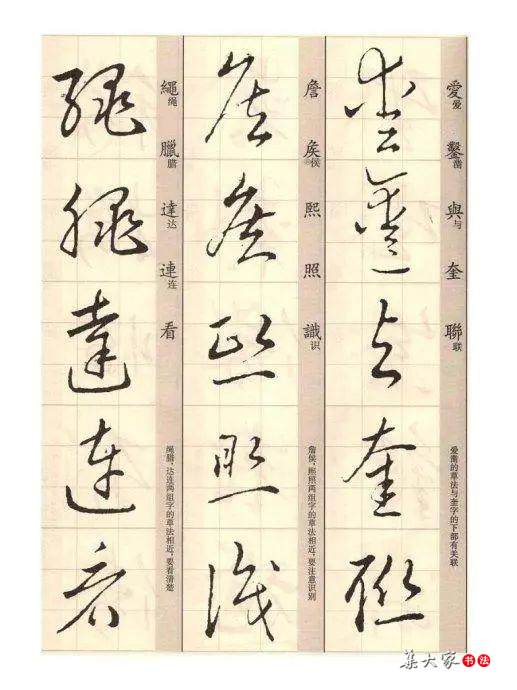 愛爱 鑿凿 與与 奎 聯联
爱凿的草法与奎字的下部有关联
愛鑿與奎聯
詹 矦侯 熙 照 識识
詹侯，熙照两组字的草法相近，要注意识别
詹矦熙照識
繩绳 臘腊 達达 連连 看
绳腊，达连两组字的草法相近，要看清楚
繩臘達連看
集大家 书法